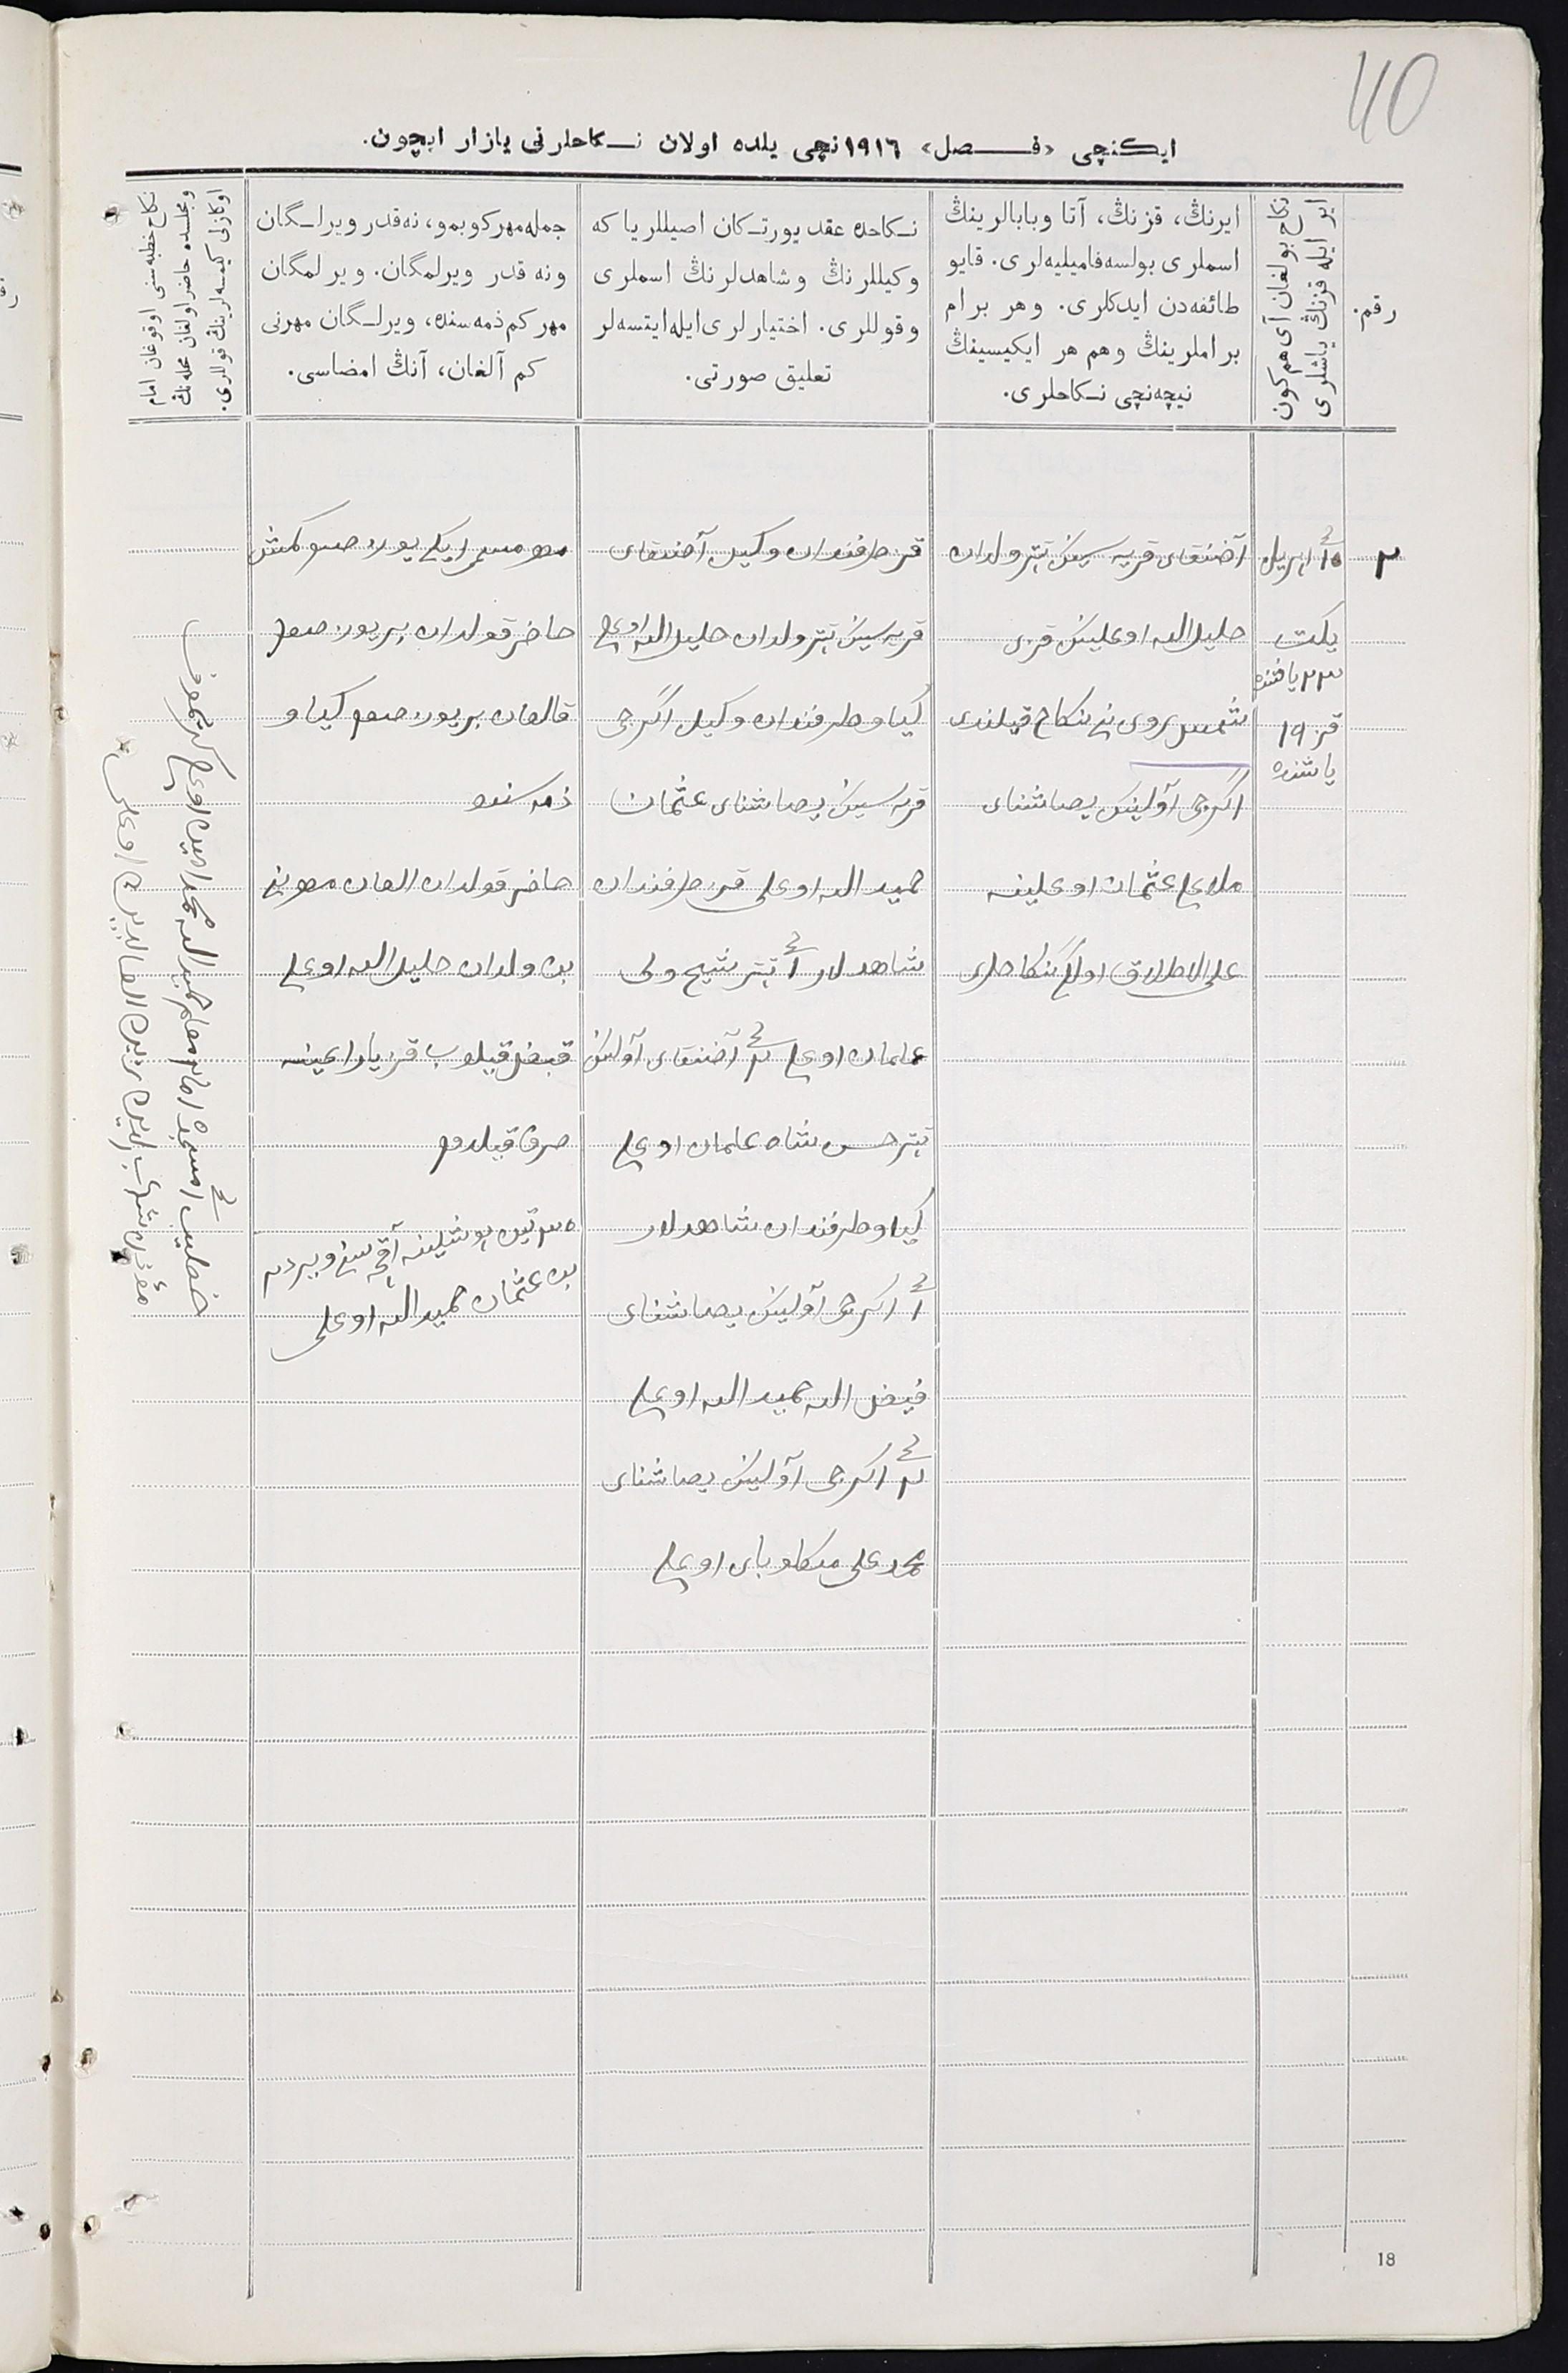 40
ایکنچی «فصل» ١٩١٦نچی یلده اولان نکاحلرنی یازار ایچون.
رقم.
نکاح بولغان آی هم کون
ایر ایله قزنڭ یاشلری
ایرنڭ، قزنڭ، آتا وبابالرینڭ
اسملری بولسه فامیلیه‌لری. قایو
طائفه‌دن ایدکلری. وهر برام
براملرینڭ وهم هر ایکیسینڭ
نیچه‌نچی نکاحلری.
نکاحده عقد یورتکان اصیللر یا که
وکیللرنڭ وشاهدلرنڭ اسملری
وقوللری. اختیارلری ایله ایتسه‌لر
تعلیق صورتی.
جمله مهر کوبمو، نه‌قدر ویرلـگان
ونه قدر ویرلمگان. ویرلمگان
مهر کم ذمه‌سنده، ویرلـگان مهرنی
کم آلغان، آنڭ امضاسی.
نکاح خطبه‌سنی اوقوغان امام
ومجلسده حاضر اولغان محله‌نڭ
اوکازلی کیمسه‌لرینڭ قوللری.
٢
١٠ اپریل
یکت
٢٣ یاشنده
قز ١٩
یاشنده
آخنقای قریه سینڭ تپتر ولدان
خلیل الله اوغلینڭ قزی
شمس روی نی نکاح قیلندی
اگرجی آولینڭ یصاشنای
عثمان اوغلینه
علی الاطلاق اولگی نکاحلری
قز طرفندان وکیل آخنقای
قریه سینڭ تپتر ولدان خلیل الله اوغلی
کیاو طرفندان وکیل اگرجی
قریه سینڭ یصاشنای عثمان
حمید الله اوغلی قز طرفندان
شاهدلار ١ تپتر شیخ ولی
علمان اوغلی ٢ آخنقای آولینڭ
تپتر حسن شاه علمان اوغلی
کیاو طرفندان شاهدلار
١ اکرجی آولینڭ یصاشنای
فیض الله حمید الله اوغلی
٢ اکرجی آولینڭ یصاشنای
محمد علی منکلو بای اوغلی
مهر مسمی ایکی یوز صوم کمش
حاضر قولدان بر یوز صوم
قالغان بر یوز صوم کیاو
ذمه سنده
حاضر قولدان العان مهرنی
بن ولدان خلیل الله اوغلی
قبض قیلوب قز یاراغینه
صرف قیلدم
٢٥ تین پوشلینه آقچه سین ویردم
بن عثمان حمید الله اوغلی
18